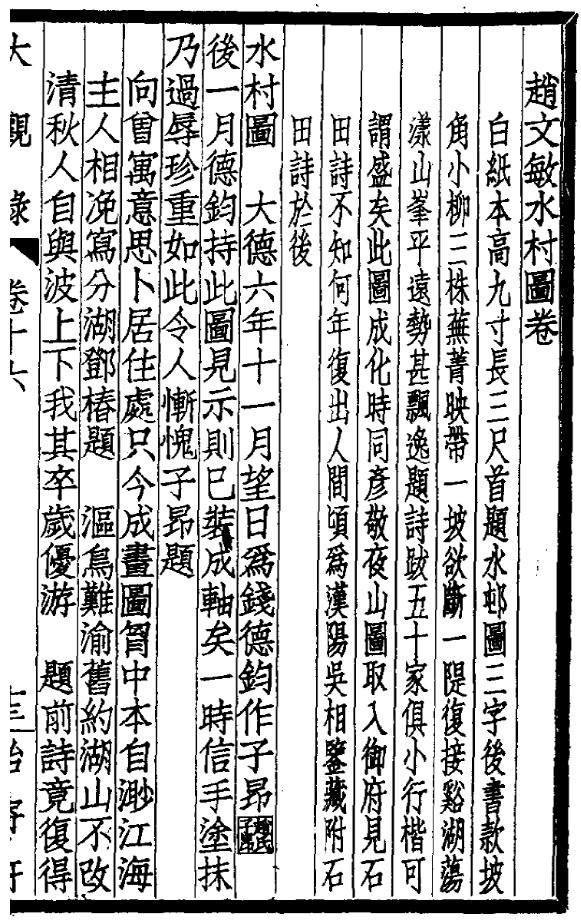 趙文敏水村圖卷
白紙本高九寸長三尺首題水邨圖三字後書款坡
角小柳二株蕪菁映帶一坡欲斷一隄復接谿湖蕩
漾山峯平遠勢甚飄逸題詩跋五十家俱小行楷可
謂盛矣此圖成化時同彥敬夜山圖取入御府見石
田詩不知何年復出人間頃爲漢陽吳相鑒藏附石
田詩於後
水村圖　大德六年十一月望日爲錢德鈞作子昂
後一月德鈞持此圖見示則已裝成軸矣一時信手塗抹
乃過辱珍重如此令人慚愧子昂題
向曾寓意思卜居住處只今成畫圖胷中本自渺江海
主人相浼寫分湖鄧椿題　漚鳥難渝舊約湖山不改
清秋人自與波上下我其卒歲優游　題前詩竟復得
大觀錄　卷十六